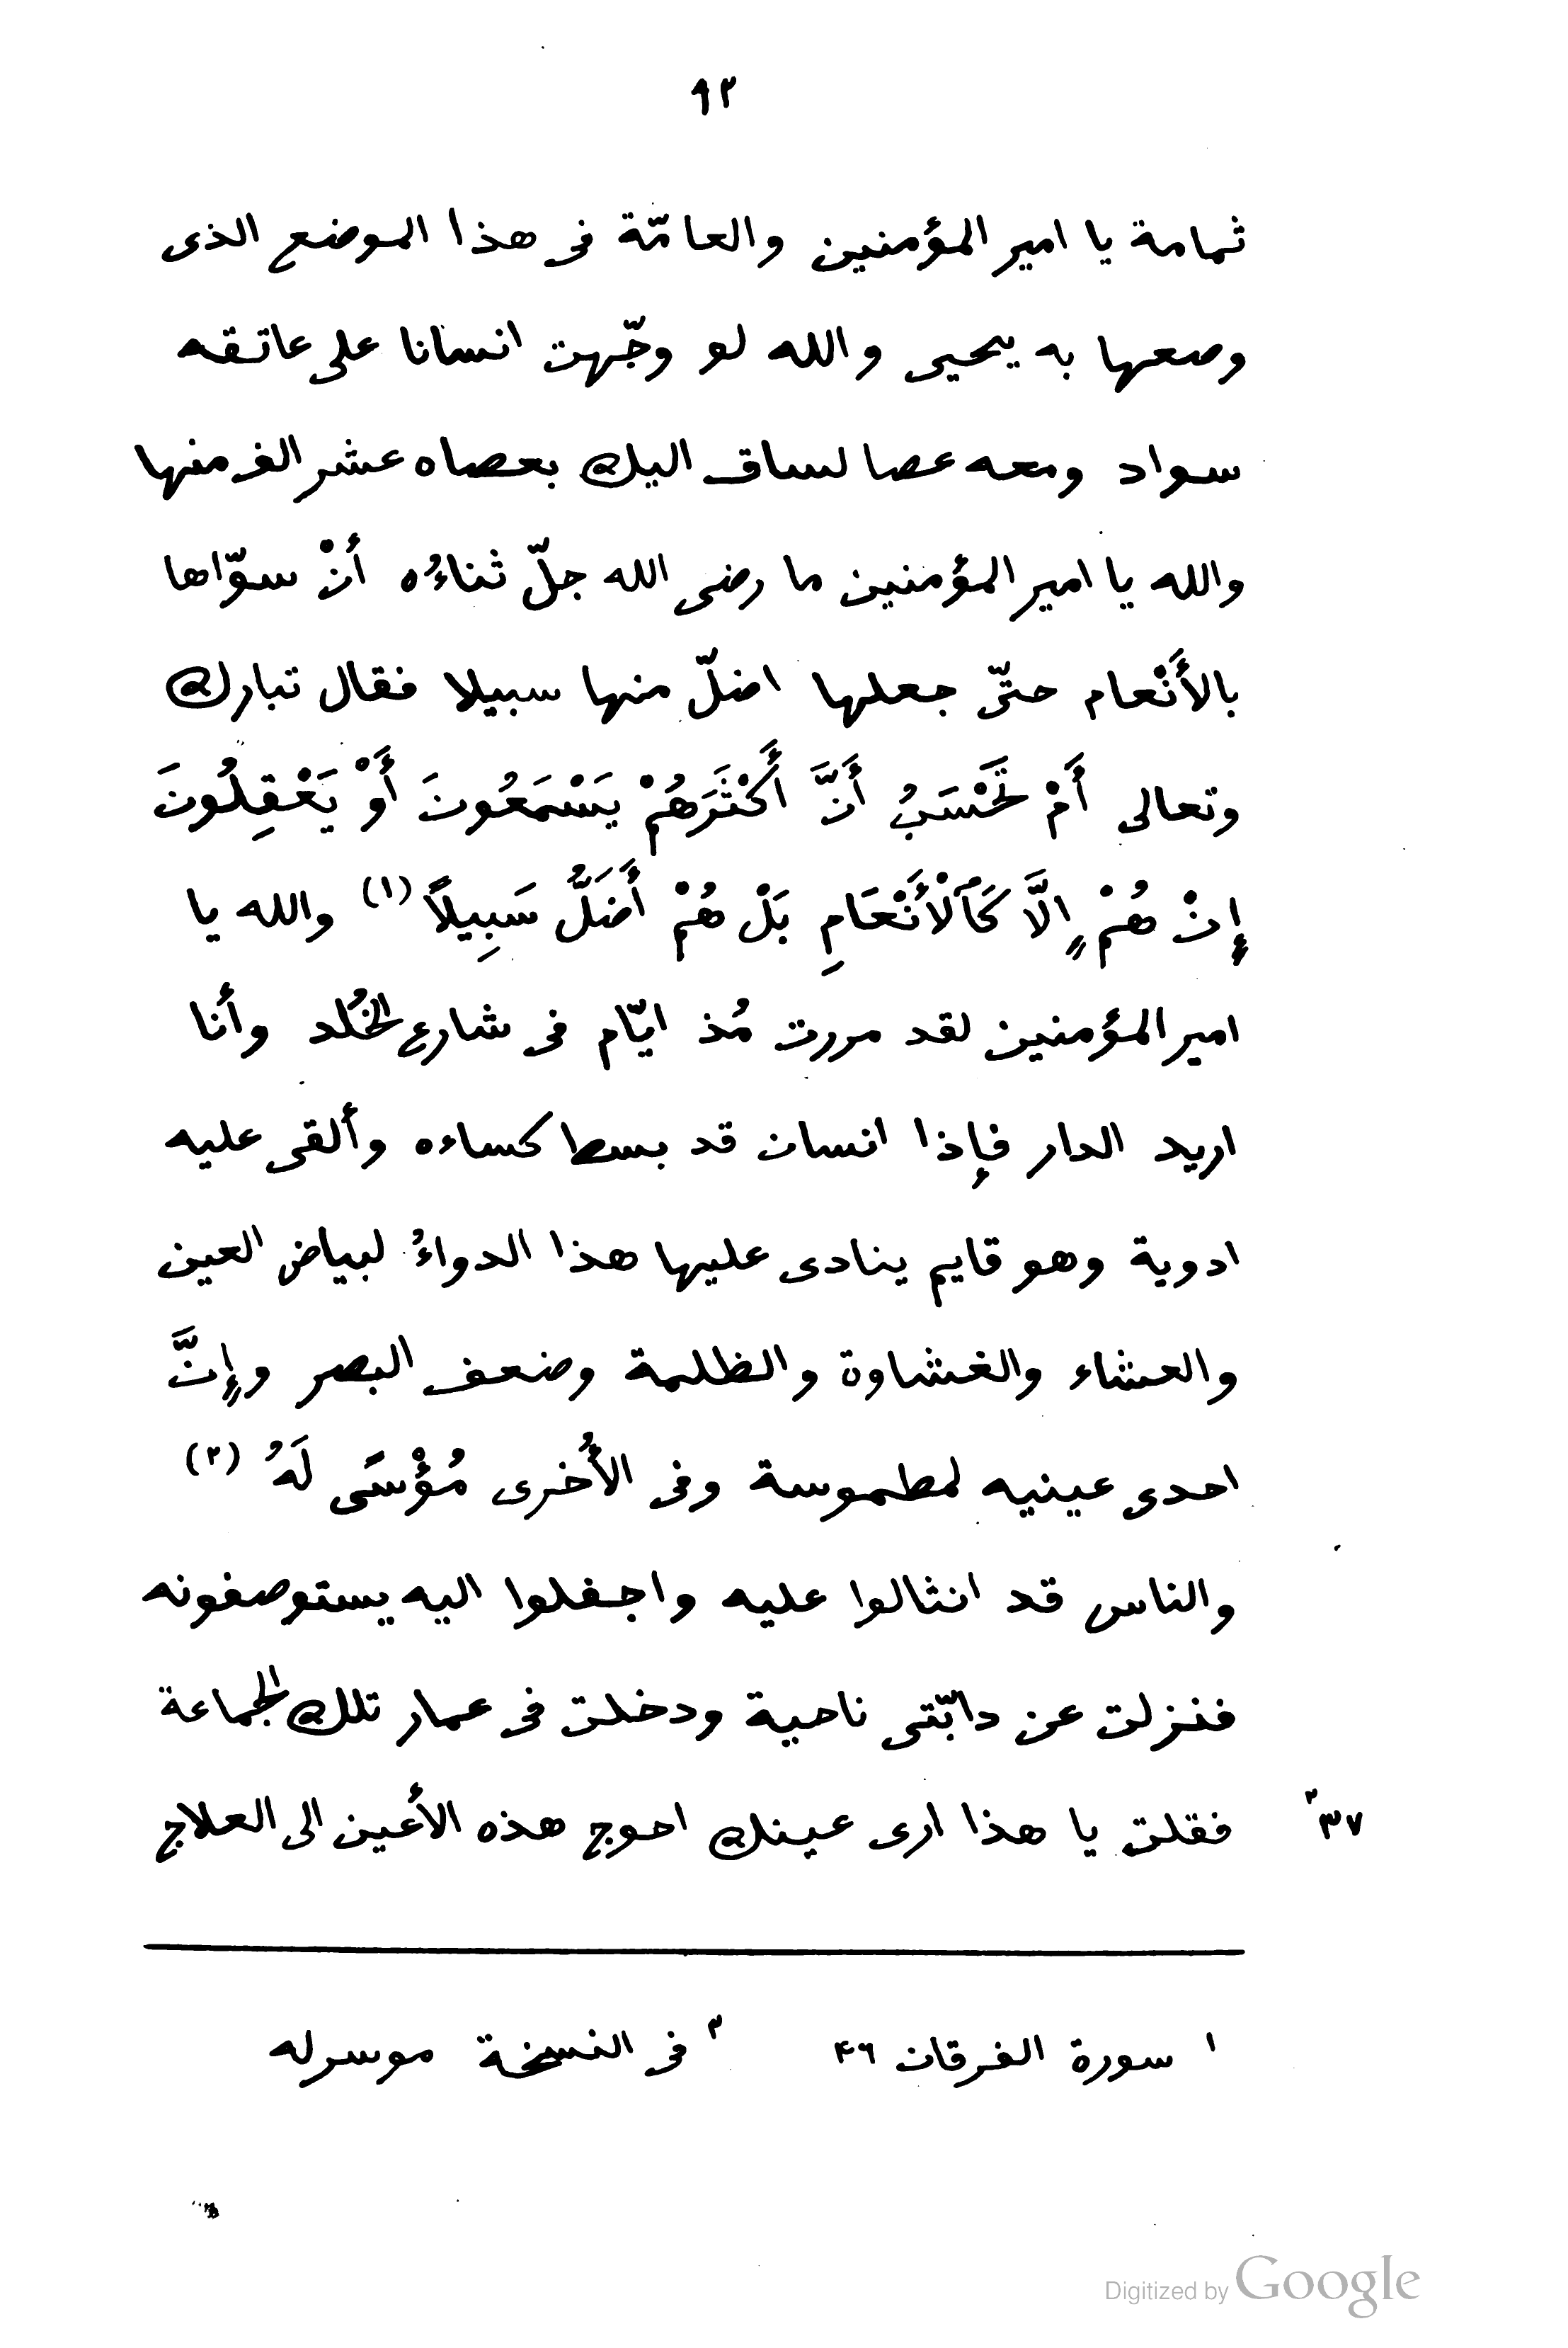 ٩٢
ثمامة يا امير المؤمنين والعامّة فى هذا الموضع الذى
وضعها به يحيى والله لو وجّهت انسانا على عاتقه
سواد ومعه عصا لساق اليك بعصاه عشر الف منها
والله يا امير المؤمنين ما رضى الله جلّ ثناءُه أنْ سوّاها
بالأَنْعام حتّى جعلها اضلّ منها سبيلا فقال تبارك
وتعالى أَمْ تَحْسَبُ أَنَّ أَكْثَرَهُمْ يَسْمَعُونَ أَوْ يَعْقِلُونَ
إِنْ هُمْ إِلَّا كَٱلْأَنْعَامِ بَلْ هُمْ أَضَلُّ سَبِيلاً (١) والله يا
امير المؤمنين لقد مررت مُذ ايّام فى شارع الخُلد وأنا
اريد الدار فإذا انسان قد بسط كساءه وألقى عليه
ادوية وهو قايم ينادى عليها هذا الدواءُ لبياض العين
والعشاء والغشاوة والظلمة وضعف البصر وإِنَّ
احدى عينيه لمطموسة وفى الأُخرى مُؤْسًى لَهُ (٢)
والناس قد انثالوا عليه واجفلوا اليه يستوصفونه
فنزلت عن دابّتى ناحية ودخلت فى عمار تلك الجماعة
فقلت يا هذا ارى عينك احوج هذه الأعين الى العلاج
٣٧٢
١ سورة الفرقان ٤٦ ٢ فى النسخة موسرله
Digitized by Google